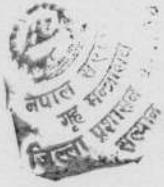 नेपाल सरकार
गृह मन्त्रालय
जिल्ला प्रशासन
सल्यान